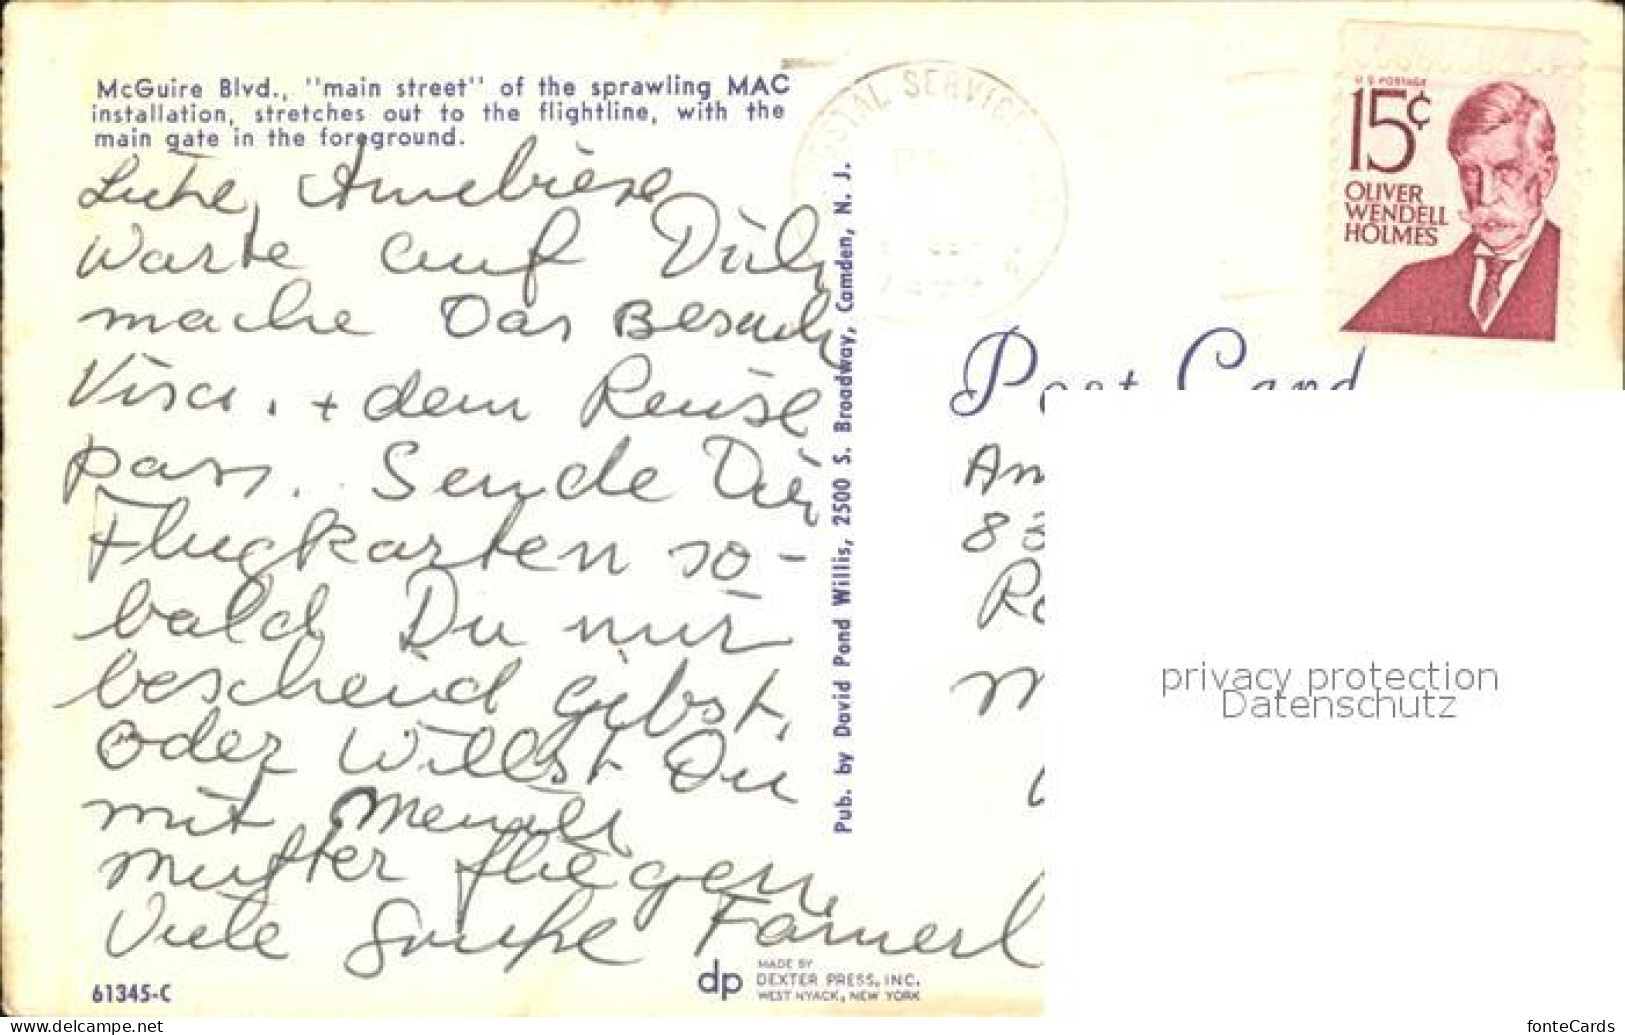 McGuire Blvd., "main street" of the sprawling MAC
installation, stretches out to the flightline, with the
main gate in the foreground.
Liebe
warte auf Dich
mache Das Besuch
Visa. + dem Reise
pass. Sende Dir
Flugkarten so-
bald Du mir
bescheid gibst,
oder willst Du
mit meiner
mutter fliegen,
Viele Grüße
61345-C
dp
MADE BY
DEXTER PRESS, INC.
WEST NYACK, NEW YORK
Pub. by David Pond Willis, 2500 S. Broadway, Camden, N. J.
POSTAL SERVICE
U S POSTAGE
15¢
OLIVER
WENDELL
HOLMES
Post Card
An
8
M
privacy protection
Datenschutz
fonteCards